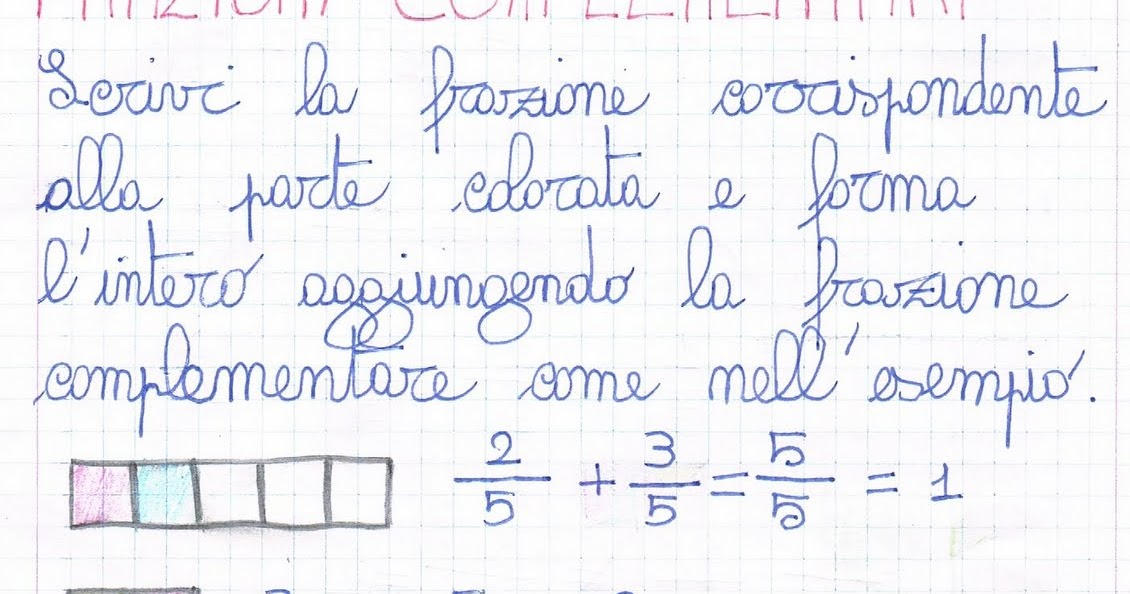 FRAZIONI COMPLEMENTARI
Scrivi la frazione corrispondente
alla parte colorata e forma
l'intero aggiungendo la frazione
complementare come nell'esempio.
2/5 + 3/5 = 5/5 = 1